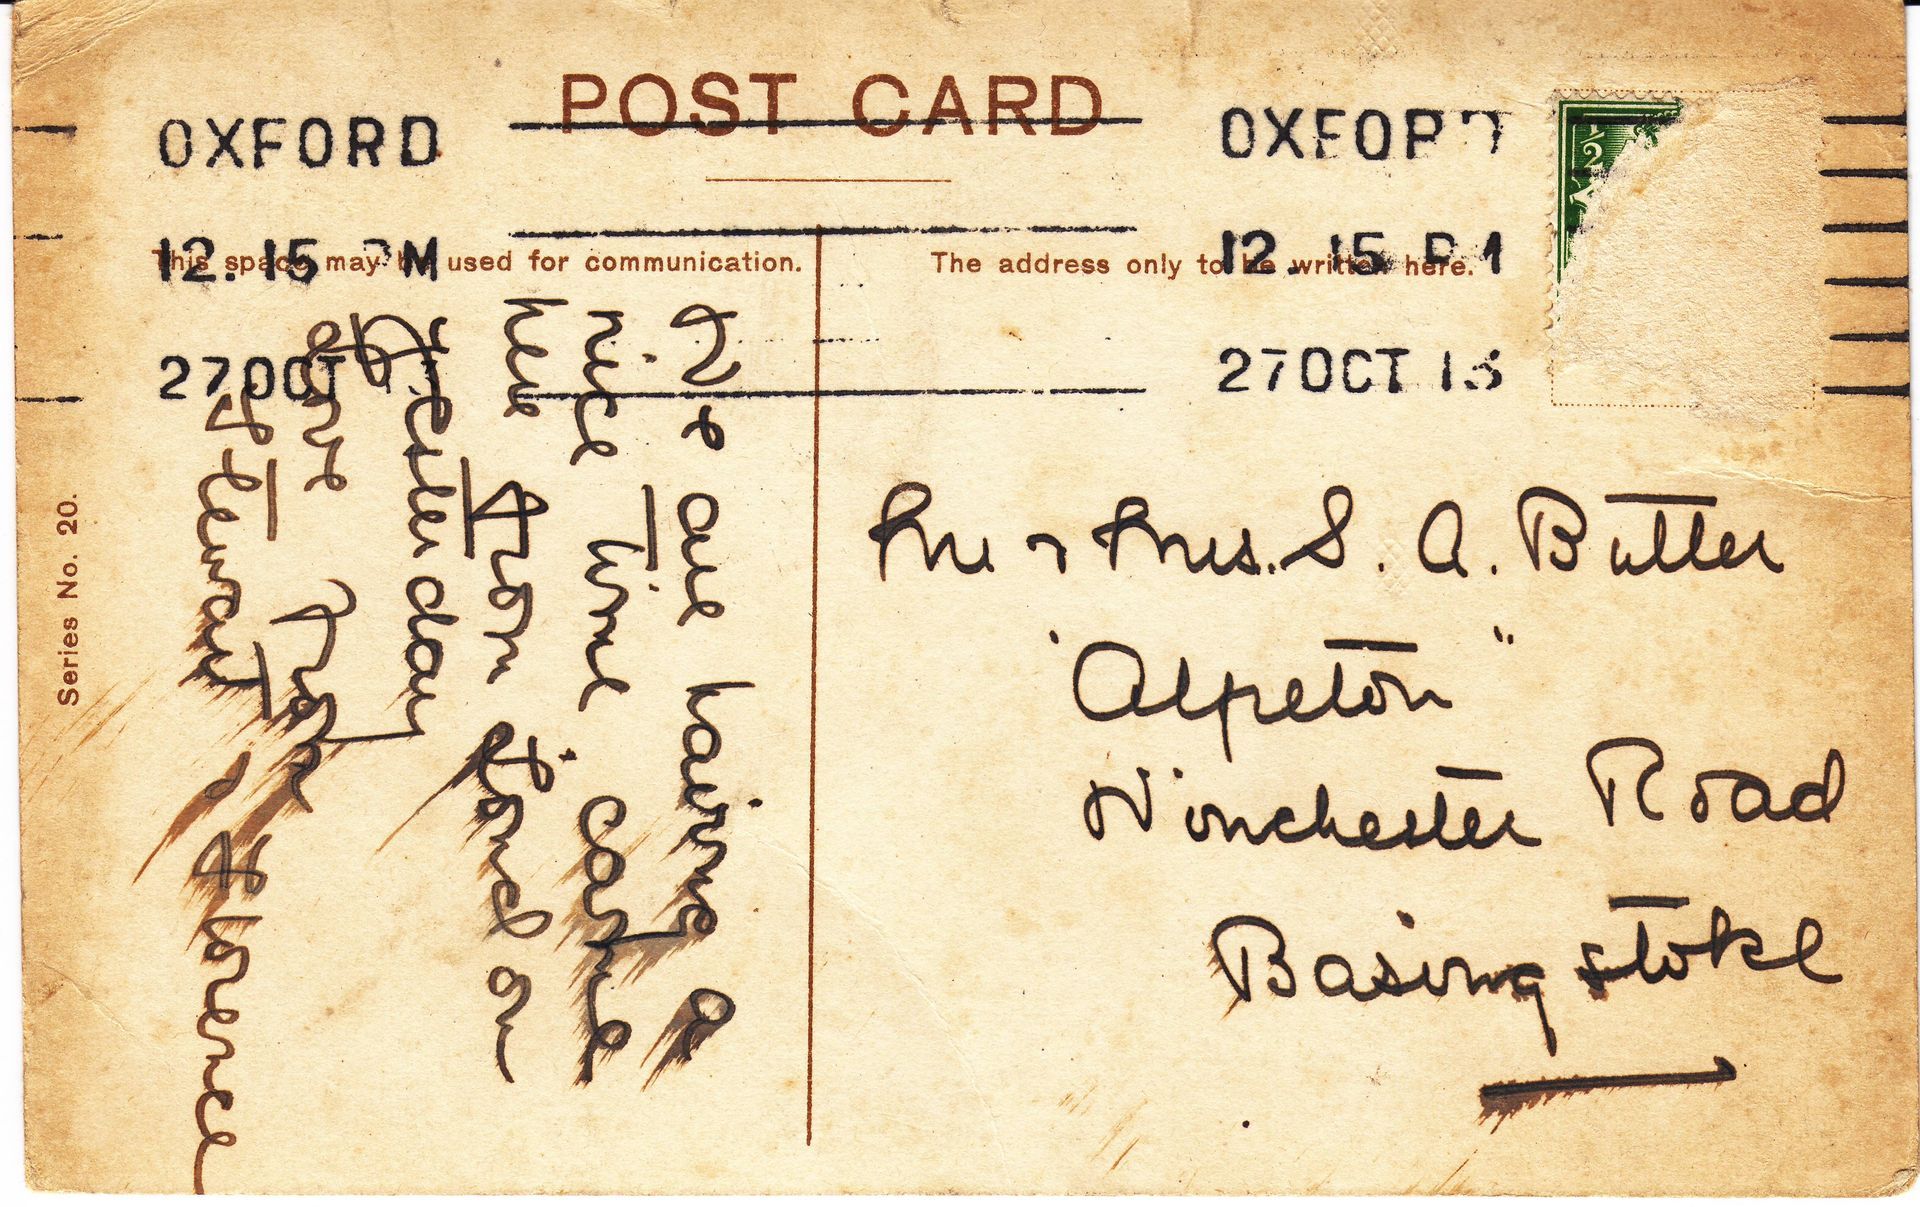 POST CARD
OXFORD
12. 15 PM
27 OCT 13
OXFORD
12. 15 PM
27 OCT 13
½
This space may be used for communication.
The address only to be written here.
Series No. 20.
We are having a
nice time. came
here from London
yesterday
Love from
Stewart & Florence
Mr & Mrs. S. A. Butler
"Alpeton"
Winchester Road
Basingstoke